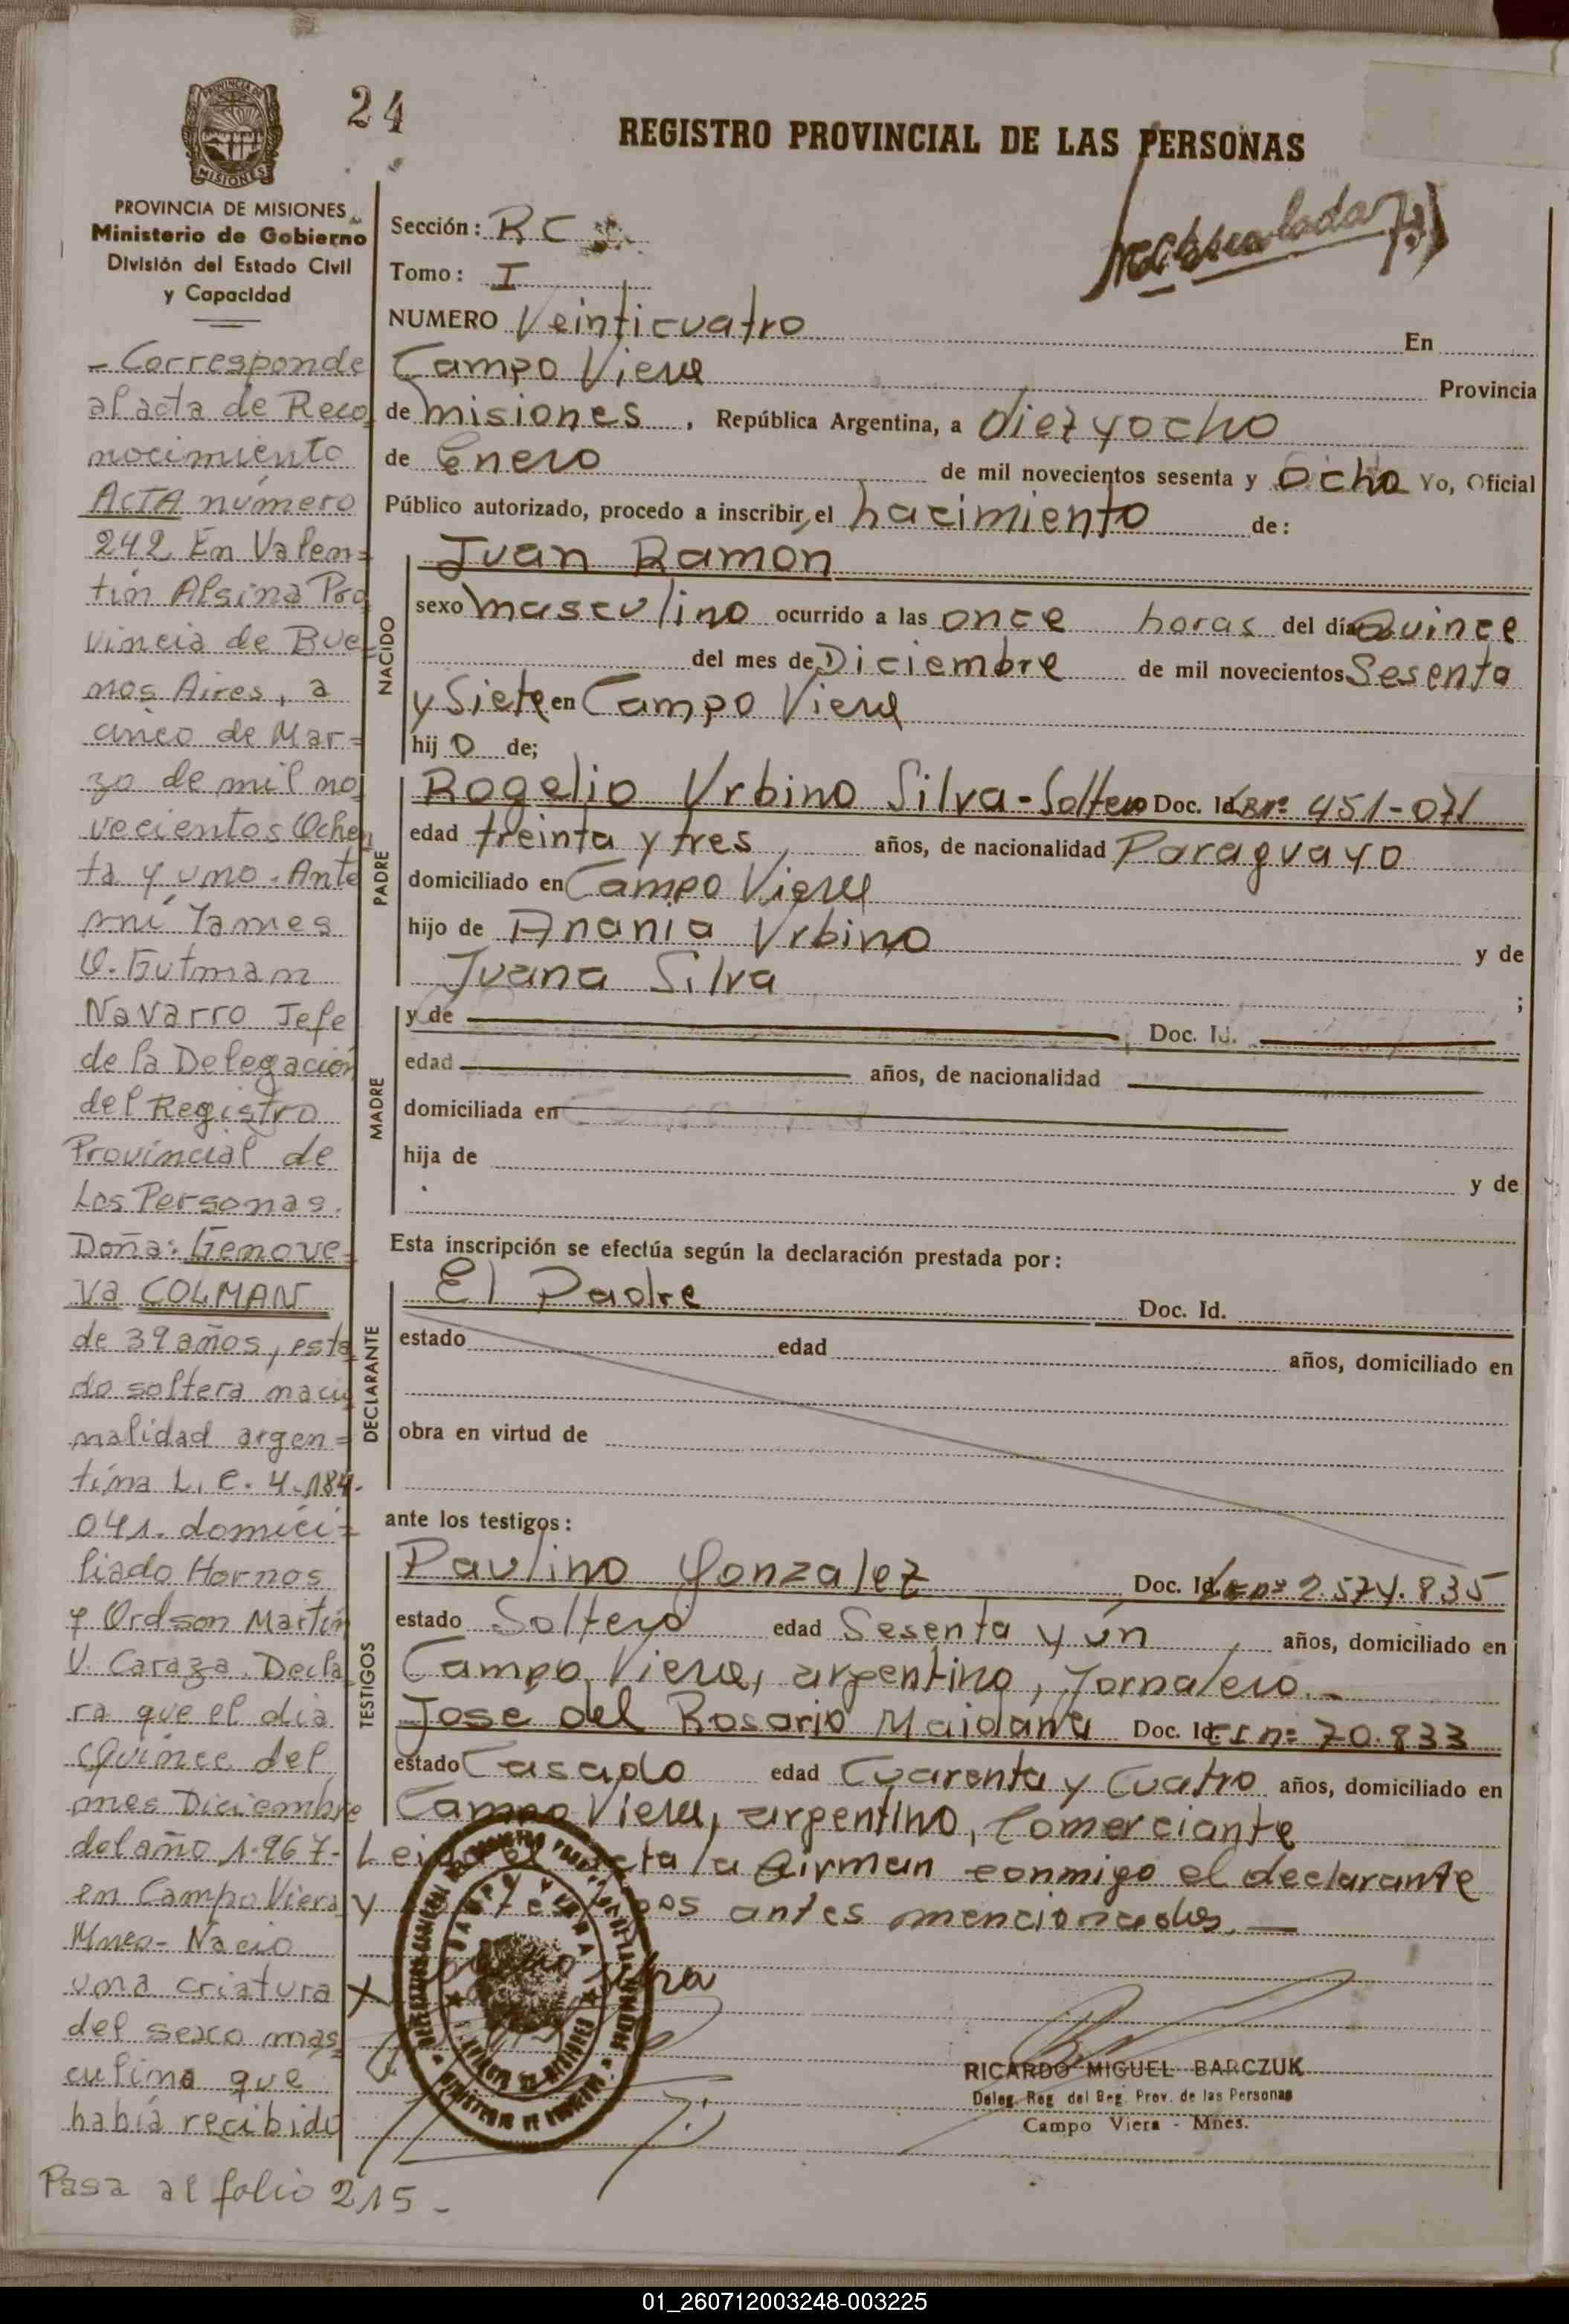 24
REGISTRO PROVINCIAL DE LAS PERSONAS
PROVINCIA DE
MISIONES
PROVINCIA DE MISIONES
Ministerio de Gobierno
División del Estado Civil
y Capacidad
- Corresponde
al acta de Reco
nocimiento
ACTA número
242 En Valen=
tín Alsina Pro
vincia de Bue
nos Aires, a
cinco de Mar=
zo de mil no
vecientos Ochen
ta y uno. Ante
mí James
O. Gutman
Navarro Jefe
de la Delegación
del Registro
Provincial de
Los Personas.
Doña: Genove=
va COLMAN
de 39 años, esta
do soltera nacio
nalidad argen=
tina L. C. 4.184.
041. domici=
liado Hornos
y Ordson Martín
V. Caraza. Decla
ra que el dia
Quince del
mes Diciembre
del año 1.967-
en Campo Viera
Mnes- Nacio
una criatura
del sexo mas
culino que
había recibido
Pasa al folio 215-
Sección: RC
Tomo: I
NUMERO Veinticuatro En
Campo Viera Provincia
de misiones, República Argentina, a diez y ocho
de Enero de mil novecientos sesenta y Ocho Yo, Oficial
Público autorizado, procedo a inscribir el nacimiento de:
NACIDO
Juan Ramón
sexo masculino ocurrido a las once horas del día Quince
del mes de Diciembre de mil novecientos Sesenta
y Siete en Campo Viera
hijo de;
PADRE
Rogelio Urbino Silva-Soltero Doc. Id. nº 451-071
edad treinta y tres, años, de nacionalidad Paraguayo
domiciliado en Campo Viera
hijo de Anania Urbino y de
Juana Silva ;
MADRE
y de Doc. Id.
edad años, de nacionalidad
domiciliada en
hija de y de
Esta inscripción se efectúa según la declaración prestada por:
DECLARANTE
El Padre Doc. Id.
estado edad años, domiciliado en
obra en virtud de
ante los testigos:
TESTIGOS
Paulino Gonzalez Doc. Id. nº 2.574.835
estado Soltero edad Sesenta y ún, años, domiciliado en
Campo Viera, argentino, Jornalero.-
José del Rosario Maidana Doc. Id. C I nº 70.833
estado Casado edad Cuarenta y Cuatro años, domiciliado en
Campo Viera, argentino, Comerciante
Leida el acta la firman conmigo el declarante
y testigos antes mencionados.-
X
RICARDO MIGUEL BARCZUK
Deleg. Reg. del Reg. Prov. de las Personas
Campo Viera - Mnes.
01_260712003248-003225